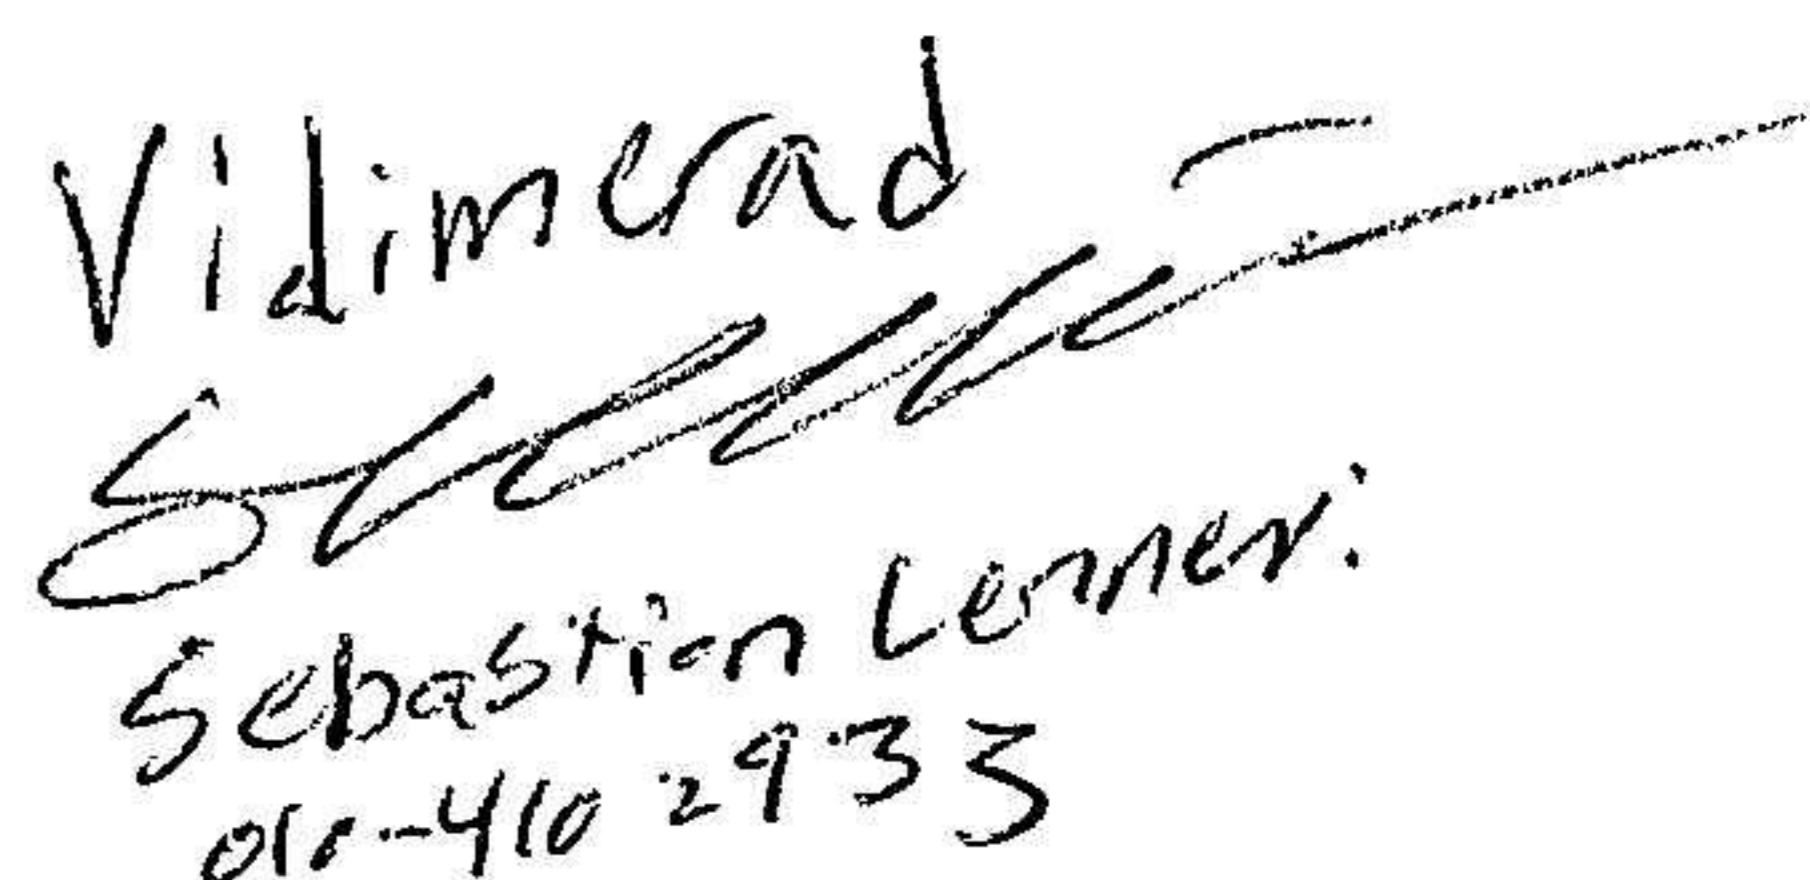 Vidimerad
Sebastian Lenner.
010-410 2933